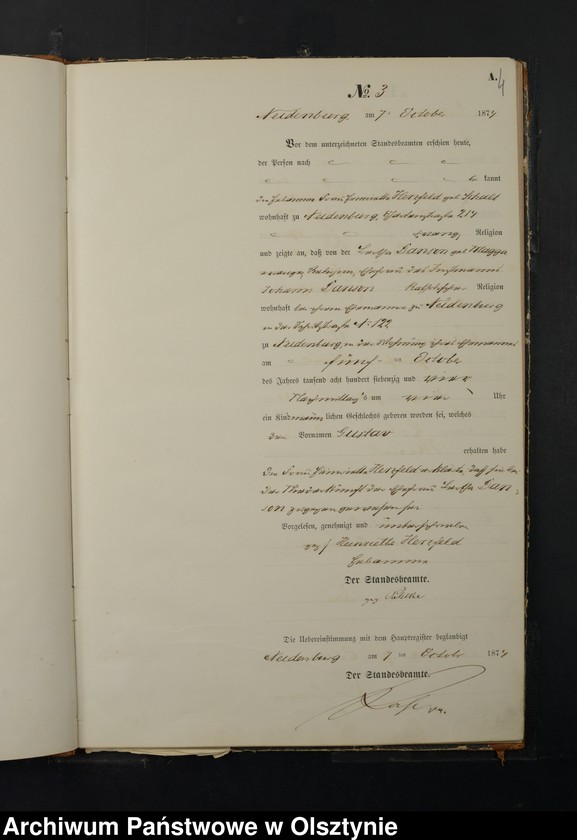 A.
4
No. 3
Neidenburg am 7 October 1874
Vor dem unterzeichneten Standesbeamten erschien heute,
der Person nach
be kannt
die Hebamme Frau Henriette Herzfeld geb.
wohnhaft zu Neidenburg, 214
evang. Religion
und zeigte an, daß von der Danson geb.
Ehefrau des Instmanns
Johann Danson Religion
wohnhaft bei ihrem Ehemanne zu Neidenburg
in der No 122
zu Neidenburg, in der Wohnung ihres Ehemannes
am fünf ten October
des Jahres tausend acht hundert siebenzig und vier
Nachmittags um vier Uhr
ein Kind männ lichen Geschlechts geboren worden sei, welches
den Vornamen Gustav
erhalten habe
Die Frau Henriette Herzfeld erklärte, daß sie bei
der Niederkunft der Ehefrau Dan-
son zugegen gewesen sei
Vorgelesen, genehmigt und unterschrieben
gez. Henriette Herzfeld
Hebamme
Der Standesbeamte.
gez.
Die Uebereinstimmung mit dem Hauptregister beglaubigt
Neidenburg am 7 ten October 1874
Der Standesbeamte.
Archiwum Państwowe w Olsztynie